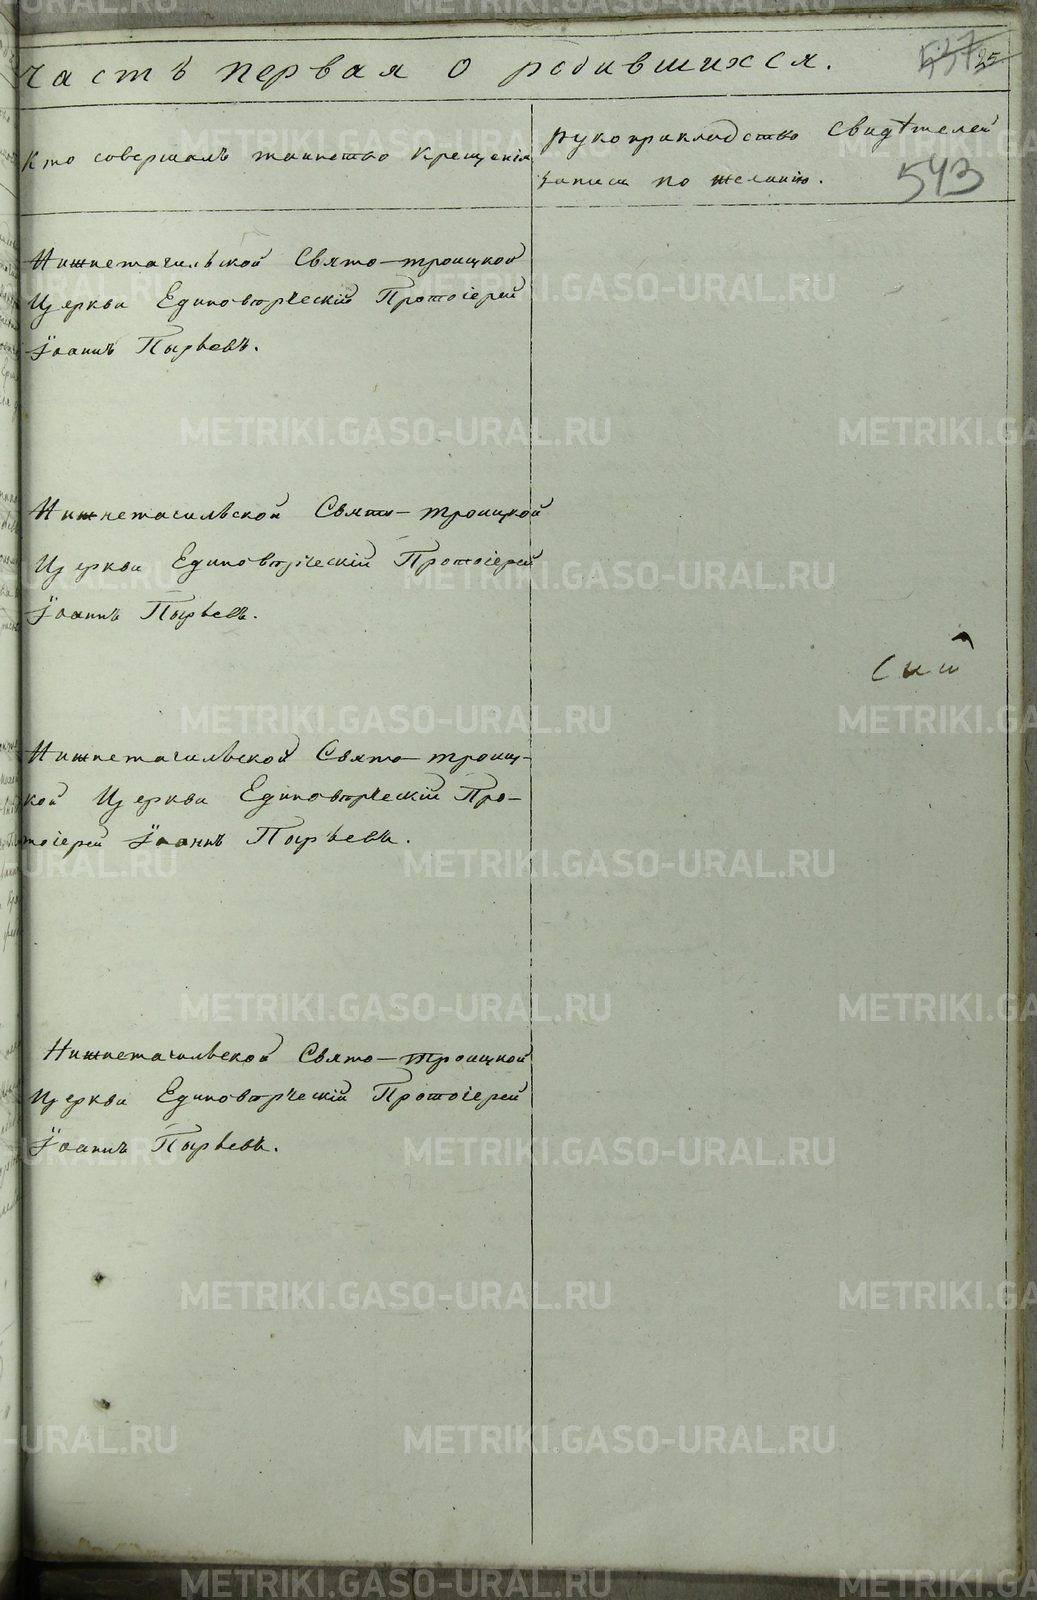 часть первая о родившихся.
537 25
Кто совершалъ таинство Крещенія
рукоприкладство свидѣтелей
записи по желанію.
543
Нижнетагильской Свято-троицкой
Церкви Единовѣрческій Протоіерей
Іоаннъ Пырьевъ.
Нижнетагильской Свято-троицкой
Церкви Единовѣрческій Протоіерей
Іоаннъ Пырьевъ.
сий
Нижнетагильской Свято-троиц-
кой Церкви Единовѣрческій Про-
тоіерей Іоаннъ Пырьевъ.
Нижнетагильской Свято-троицкой
Церкви Единовѣрческій Протоіерей
Іоаннъ Пырьевъ.
METRIKI.GASO-URAL.RU